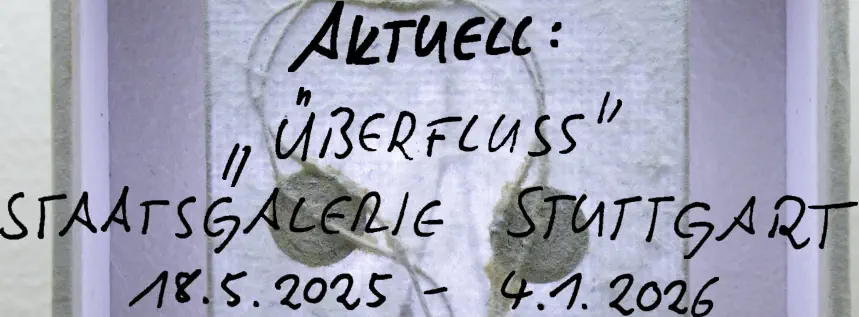 AKTUELL:
„ÜBERFLUSS"
STAATSGALERIE STUTTGART
18.5.2025 - 4.1.2026